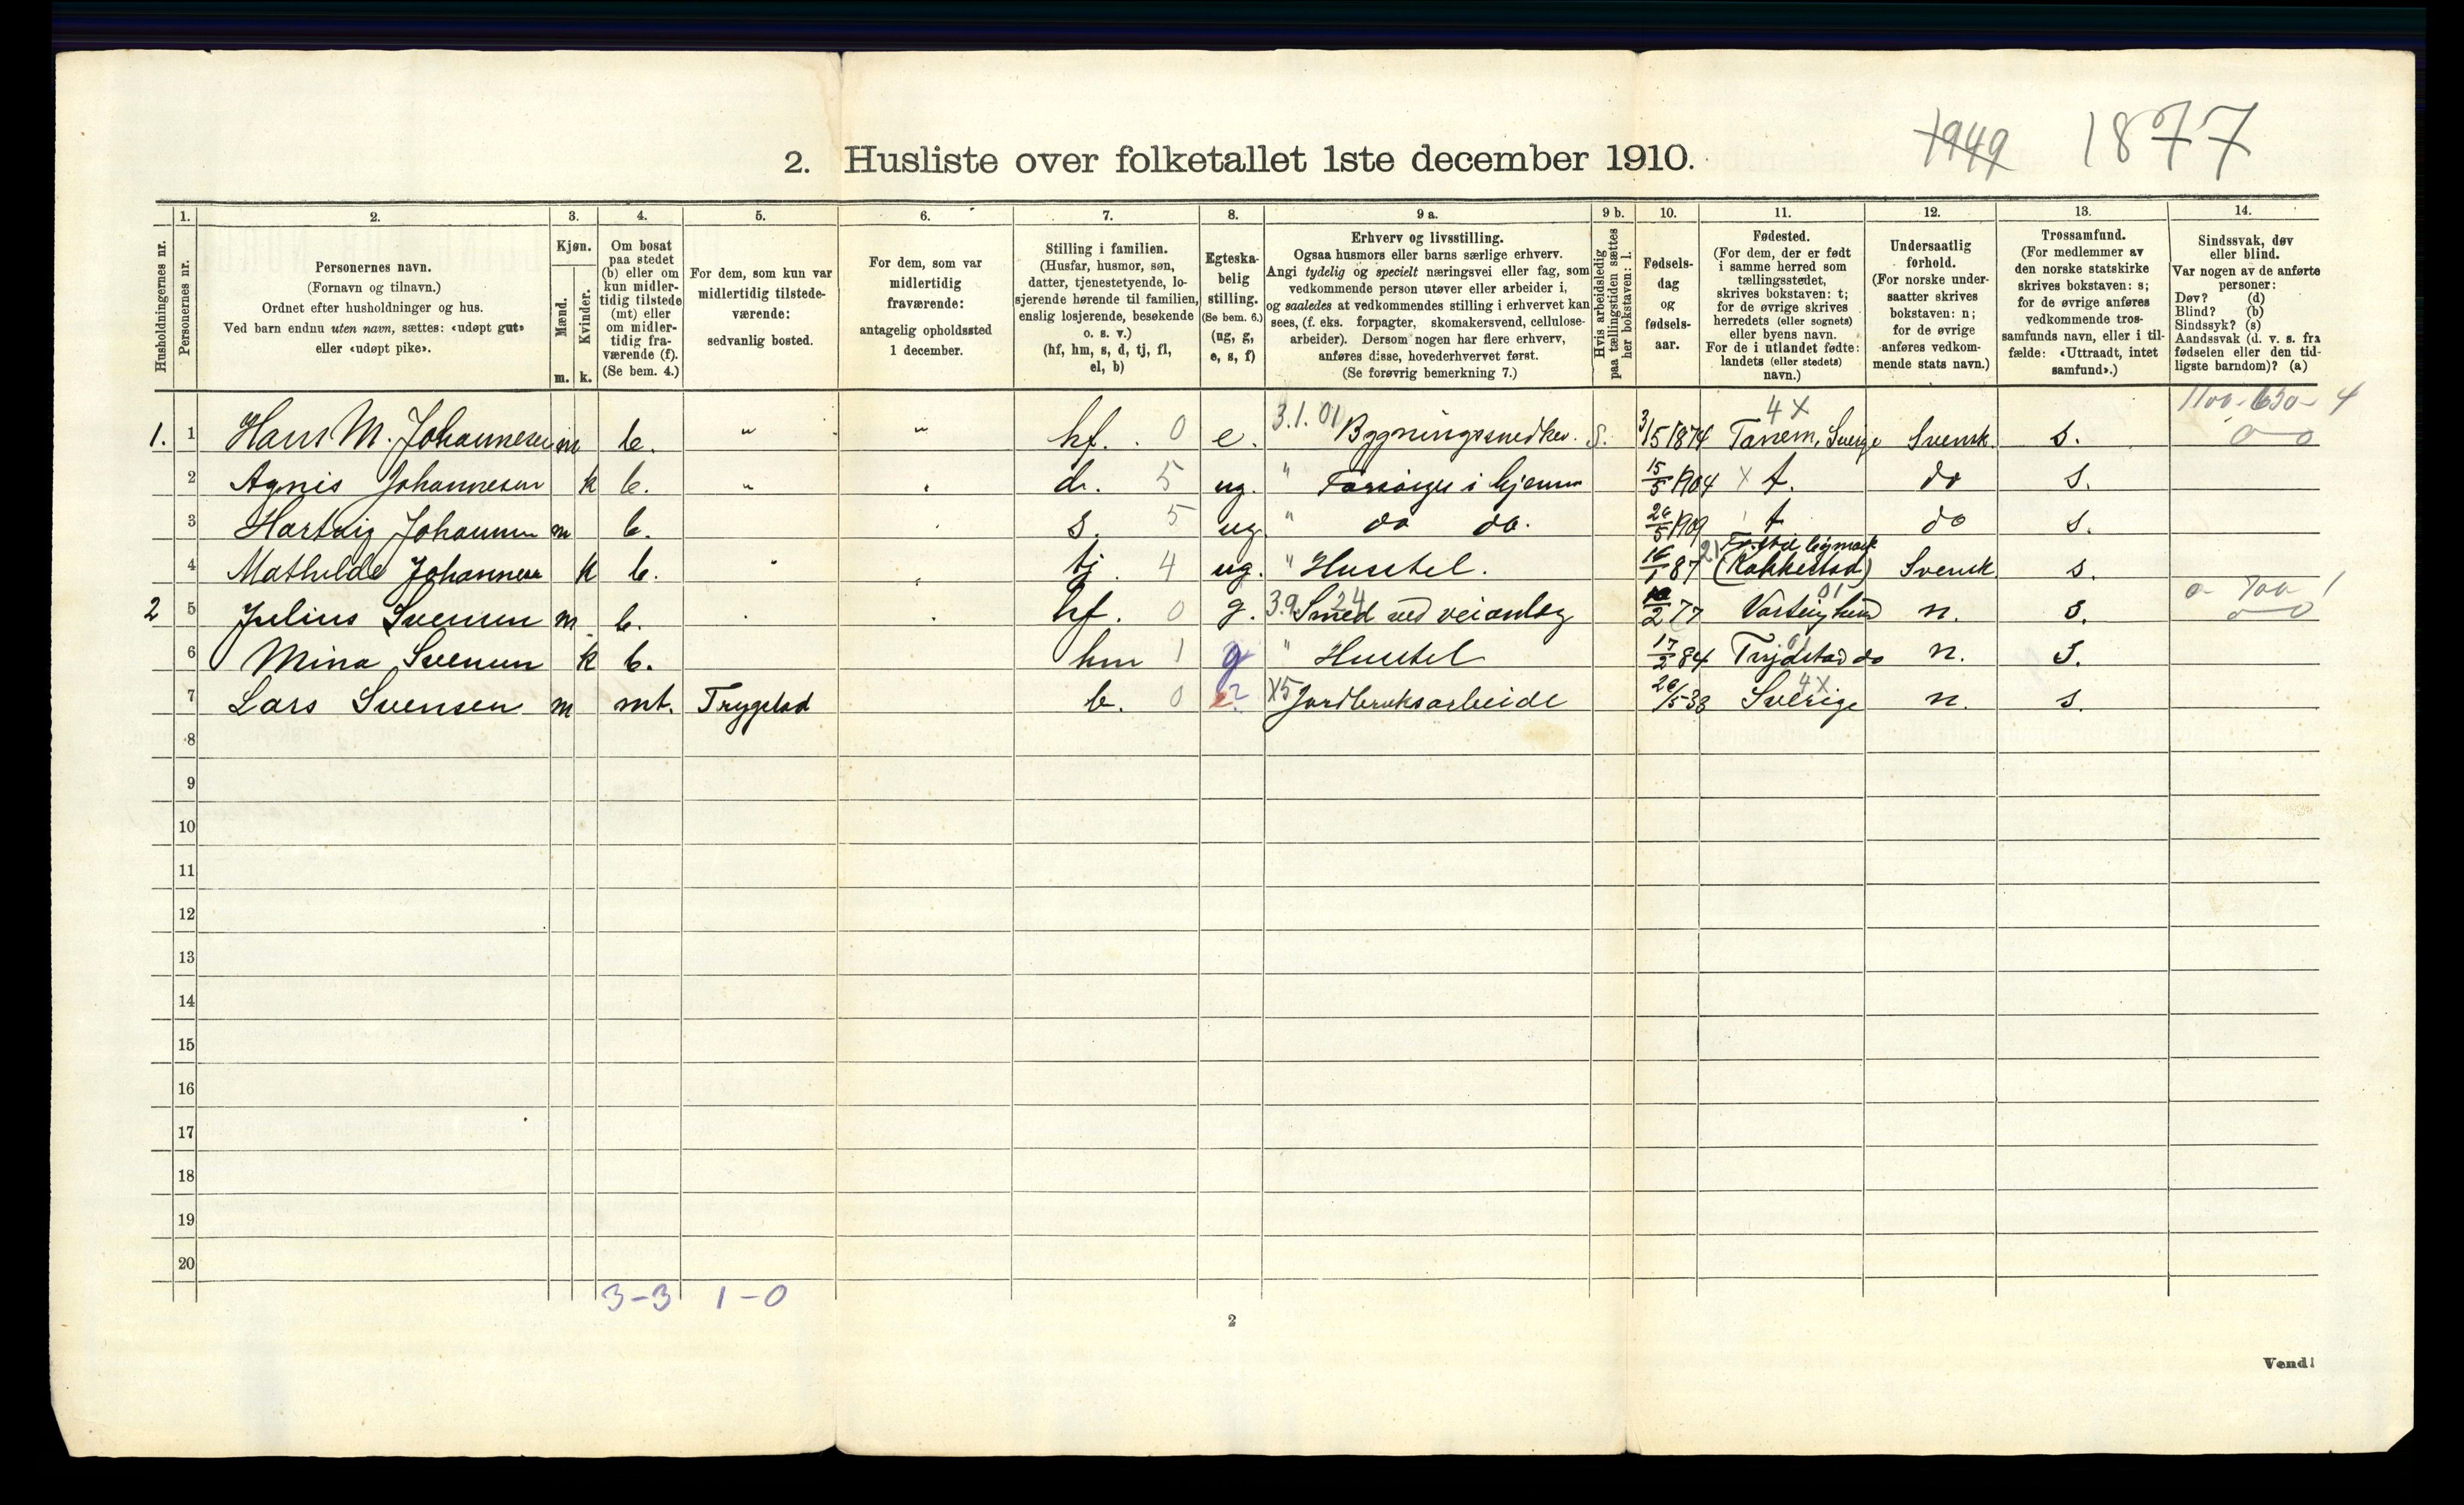 1949 1877
2. Husliste over folketallet 1ste december 1910.
1. 2. 3. 4. 5. 6. 7. 8. 9 a. 9 b. 10. 11. 12. 13. 14.
Husholdningernes nr.
Personernes nr.
Personernes navn.
(Fornavn og tilnavn.)
Ordnet efter husholdninger og hus.
Ved barn endnu uten navn, sættes: «udøpt gut»
eller «udøpt pike».
Kjøn.
Mænd.
Kvinder.
m. k.
Om bosat
paa stedet
(b) eller om
kun midler-
tidig tilstede
(mt) eller
om midler-
tidig fra-
værende (f).
(Se bem. 4.)
For dem, som kun var
midlertidig tilstede-
værende:
sedvanlig bosted.
For dem, som var
midlertidig
fraværende:
antagelig opholdssted
1 december.
Stilling i familien.
(Husfar, husmor, søn,
datter, tjenestetyende, lo-
sjerende hørende til familien,
enslig losjerende, besøkende
o. s. v.)
(hf, hm, s, d, tj, fl,
el, b)
Egteska-
belig
stilling.
(Se bem. 6.)
(ug, g,
e, s, f)
Erhverv og livsstilling.
Ogsaa husmors eller barns særlige erhverv.
Angi tydelig og specielt næringsvei eller fag, som
vedkommende person utøver eller arbeider i,
og saaledes at vedkommendes stilling i erhvervet kan
sees, (f. eks. forpagter, skomakersvend, cellulose-
arbeider). Dersom nogen har flere erhverv,
anføres disse, hovederhvervet først.
(Se forøvrig bemerkning 7.)
Hvis arbeidsledig
paa tællingstiden sættes
her bokstaven: l.
Fødsels-
dag
og
fødsels-
aar.
Fødested.
(For dem, der er født
i samme herred som
tællingsstedet,
skrives bokstaven: t;
for de øvrige skrives
herredets (eller sognets)
eller byens navn.
For de i utlandet fødte:
landets (eller stedets)
navn.)
Undersaatlig
forhold.
(For norske under-
saatter skrives
bokstaven: n;
for de øvrige
anføres vedkom-
mende stats navn.)
Trossamfund.
(For medlemmer av
den norske statskirke
skrives bokstaven: s;
for de øvrige anføres
vedkommende tros-
samfunds navn, eller i til-
fælde: «Uttraadt, intet
samfund».)
Sindssvak, døv
eller blind.
Var nogen av de anførte
personer:
Døv? (d)
Blind? (b)
Sindssyk? (s)
Aandssvak (d. v. s. fra
fødselen eller den tid-
ligste barndom)? (a)
1100-630-4
1. 1 Hans M. Johannesen m b. " " hf. 0 e. 3.1.01 Bygningssnedker. S. 3/5 1874 4X Tanem, Sverige Svensk. s. 0 0
2 Agnis Johannesen k b. " d. 5 ug. " Forsørges i hjemm 15/5 1904 X t. do s.
3 Hartvig Johannen m b. s. 5 ug. " do do. 26/5 1909 t do s.
4 Mathilde Johannese k b. tj. 4 ug. " Husstel. 16/1 87 (Rakkestad) Svensk s.
2 5 Julius Svensen m b. hf. 0 g. 3.9.24 Smed ved veianleg /2 77 01 n. s. 0 700 1 0 0
6 Mina Svensen k b. hm 1 g " Husstel 17/2 84 Trydstad do n. s.
7 Lars Svensen m mt. Trygstad b. 0 e? X5 Jordbruksarbeide 26/5-38 4X Sverige n. s.
8
9
10
11
12
13
14
15
16
17
18
19
20
3-3 1-0
2
Vend!